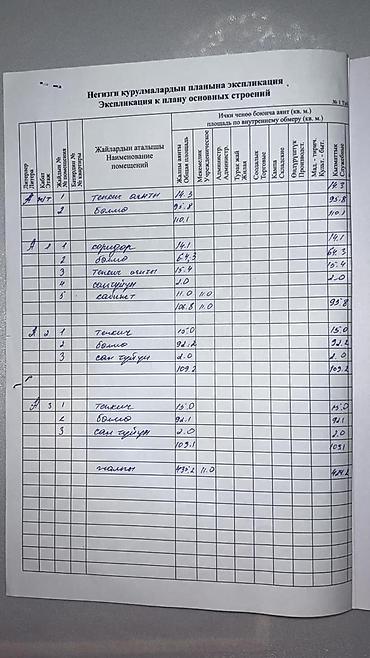 Негизги курулмалардын планына экспликация
Экспликация к плану основных строений
№ 1 Таб
Литерлер Литера
Кабат Этаж
Жайдын № № помещения
Батирдин № № квартиры
Жайлардын аталышы
Наименование
помещений
Ички ченөө боюнча аянт (кв. м.)
площадь по внутреннему обмеру (кв. м.)
Жалпы аянты Общая площадь
Мекемелик Учрежденческие
Администр. Администр.
Турак жай Жилая
Соодалык Торговые
Кампа Складские
Өндүрүштүк Производст.
Мад. - тирич. Культ. - быт.
Кызматтык Служебные
А 1 14.3 14.3
2 95.8 95.8
110.1 110.1
А 1 1 коридор 14.1 14.1
2 64.3 64.3
3 15.4 15.4
4 2.0 2.0
5 кабинет 11.0 11.0
106.8 11.0 95.8
А 2 1 тепкич 15.0 15.0
2 92.2 92.2
3 сан түйүн 2.0 2.0
109.2 109.2
А 3 1 тепкич 15.0 15.0
2 92.1 92.1
3 сан түйүн 2.0 2.0
109.1 109.1
жалпы 435.2 11.0 424.2